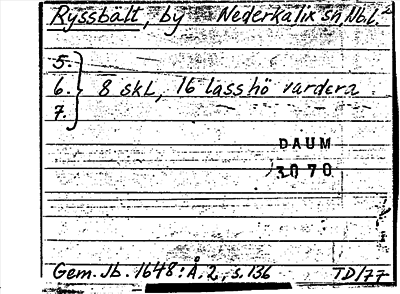 Ryssbält, by Nederkalix sn, Nbl.
5.
6. } 8 skl, 16 lass hö vardera
7.
DAUM
3070
Gem. Jb. 1648: Å. 2, s. 136 TD/77